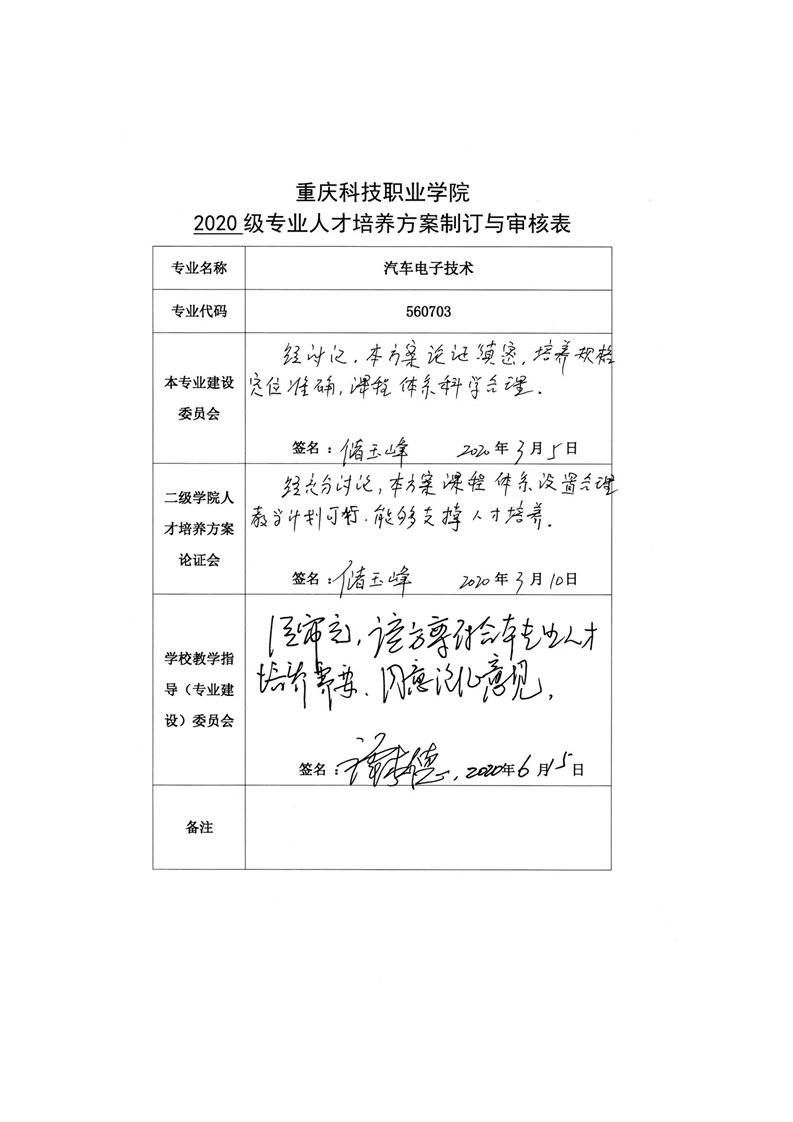 重庆科技职业学院
2020 级专业人才培养方案制订与审核表
专业名称
汽车电子技术
专业代码
560703
本专业建设
委员会
经讨论，本方案论证缜密，培养规格
定位准确，课程体系科学合理。
签名：储玉峰 2020年3月5日
二级学院人
才培养方案
论证会
经充分讨论，本方案课程体系设置合理
教学计划可行，能够支撑人才培养。
签名：储玉峰 2020年3月10日
学校教学指
导（专业建
设）委员会
经审定，该方案符合本专业人才
培养需要、同意论证意见。
签名：谭 德，2020年6月15日
备注